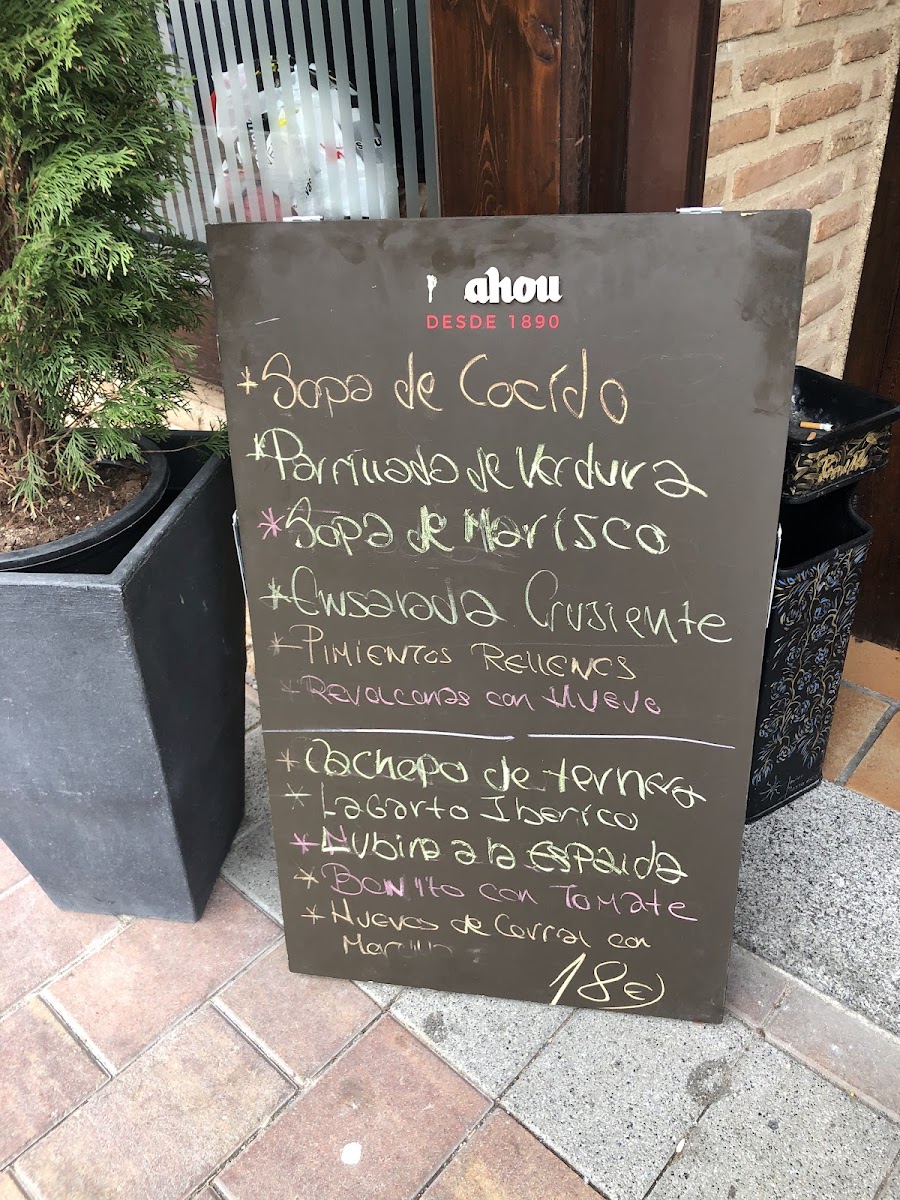 ahou
DESDE 1890
*Sopa de Cocído
*Parrillada de Verdura
*Sopa de Marísco
*Ensalada Crusiente
*PIMIENTOS RELLENOS
*REVOLCONAS con HUEVO
*Cachopo de ternera
*Lagarto Iberico
*Lubina a la ESPALDA
*BONITO con TOMATE
*HUEVOS de Corral con
18€